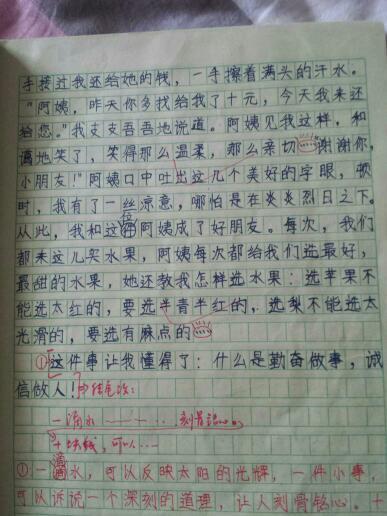 手接过我还给她的钱，一手擦着满头的汗水。
"阿姨，昨天你多找给我了十元，今天我来还
给您。"我支支吾吾地说道。阿姨见我这样，和
蔼地笑了，笑得那么温柔，那么亲切"谢谢你，
小朋友！"阿姨口中吐出这几个美好的字眼，顿
时，我有了一丝凉意，哪怕是在炎炎烈日之下。
从此，我和这位阿姨成了好朋友。每次，我们
都来这儿买水果，阿姨每次都给我们选最好，
最甜的水果，她还教我怎样选水果：选苹果不
能选太红的，要选半青半红的，选梨不能选太
光滑的，要选有麻点的
①这件事让我懂得了：什么是勤奋做事，诚
信做人！
一滴水——…刻骨铭心。
十块钱，可以…
①：一滴水，可以反映太阳的光辉，一件小事，
可以诉说一个深刻的道理，让人刻骨铭心。十